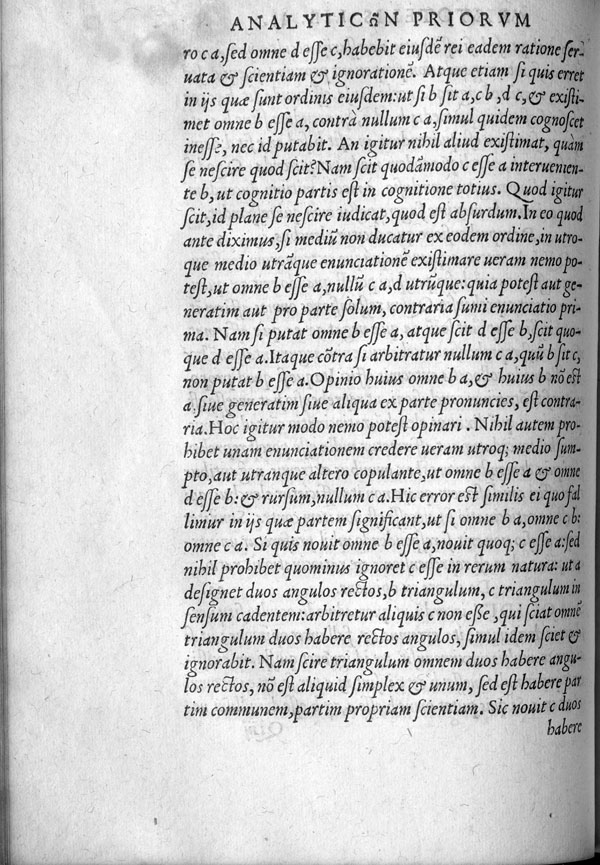 ANALYTICῶN PRIORVM
ro c a, sed omne d esse c, habebit eiusdē rei eadem ratione ser-
uata & scientiam & ignorationē. Atque etiam si quis erret
in ijs quæ sunt ordinis eiusdem: ut si b sit a, c b, d c, & existi-
met omne b esse a, contrà nullum c a, simul quidem cognoscet
inesse, nec id putabit. An igitur nihil aliud existimat, quàm
se nescire quod scit? Nam scit quodāmodo c esse a interuenien-
te b, ut cognitio partis est in cognitione totius. Quod igitur
scit, id plane se nescire iudicat, quod est absurdum. In eo quod
ante diximus, si mediū non ducatur ex eodem ordine, in utro-
que medio utrāque enunciationē existimare ueram nemo po-
test, ut omne b esse a, nullū c a, d utrūque: quia potest aut ge-
neratim aut pro parte solum, contraria sumi enunciatio pri-
ma. Nam si putat omne b esse a, atque scit d esse b, scit quo-
que d esse a. Itaque cōtra si arbitratur nullum c a, quū b sit c,
non putat b esse a. Opinio huius omne b a, & huius b nō est
a siue generatim siue aliqua ex parte pronuncies, est contra-
ria. Hoc igitur modo nemo potest opinari. Nihil autem pro-
hibet unam enunciationem credere ueram utroq; medio sum-
pto, aut utranque altero copulante, ut omne b esse a & omne
d esse b: & rursum, nullum c a. Hic error est similis ei quo fal
limur in ijs quæ partem significant, ut si omne b a, omne c b:
omne c a. Si quis nouit omne b esse a, nouit quoq; c esse a: sed
nihil prohibet quominus ignoret c esse in rerum natura: ut a
designet duos angulos rectos, b triangulum, c triangulum in
sensum cadentem: arbitretur aliquis c non esse, qui sciat omnē
triangulum duos habere rectos angulos, simul idem sciet &
ignorabit. Nam scire triangulum omnem duos habere angu-
los rectos, nō est aliquid simplex & unum, sed est habere par
tim communem, partim propriam scientiam. Sic nouit c duos
habere